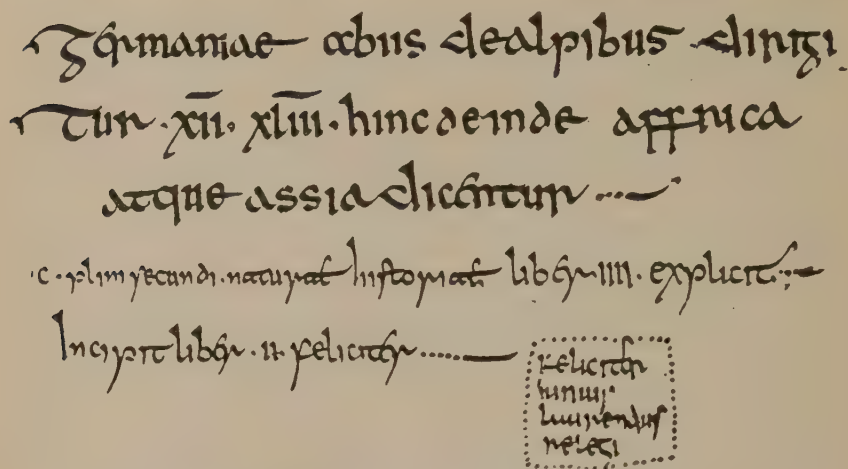 germaniae abus dealpibus dirigi
tur · x̅i̅i̅ · xl̅i̅i̅i̅ · hinc deinde affrica
atque assia dicentur
·c· plini secundi · naturał historiał liber · iiii · explicit
Incipit liber · u · feliciter
feliciter
iunius
laurentius
relegi